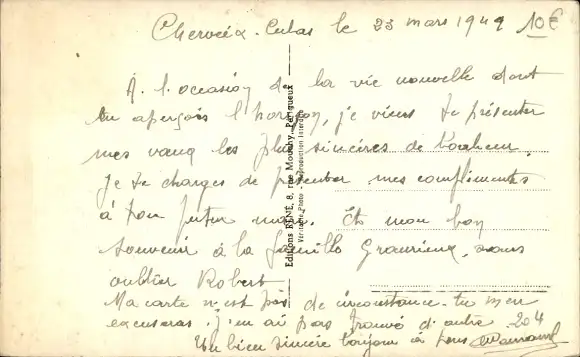 Cherveix-Cubas le 23 mars 1949
10€
A l'occasion de la vie nouvelle dont
tu aperçois l'horizon, je viens te présenter
mes vœux les plus sincères de bonheur.
Je te charges de présenter mes compliments
à ton futur mari. Et mon bon
souvenir à la famille sans
oublier Robert
Ma carte n'est pas de circonstance. tu m'en
excuseras. J'en ai pas trouvé d'autre. 204
Un bien sincère toujours à tous
Editions RENÉ, 8, rue Mouchy, Périgueux
Véritable Photo - Reproduction Interdite